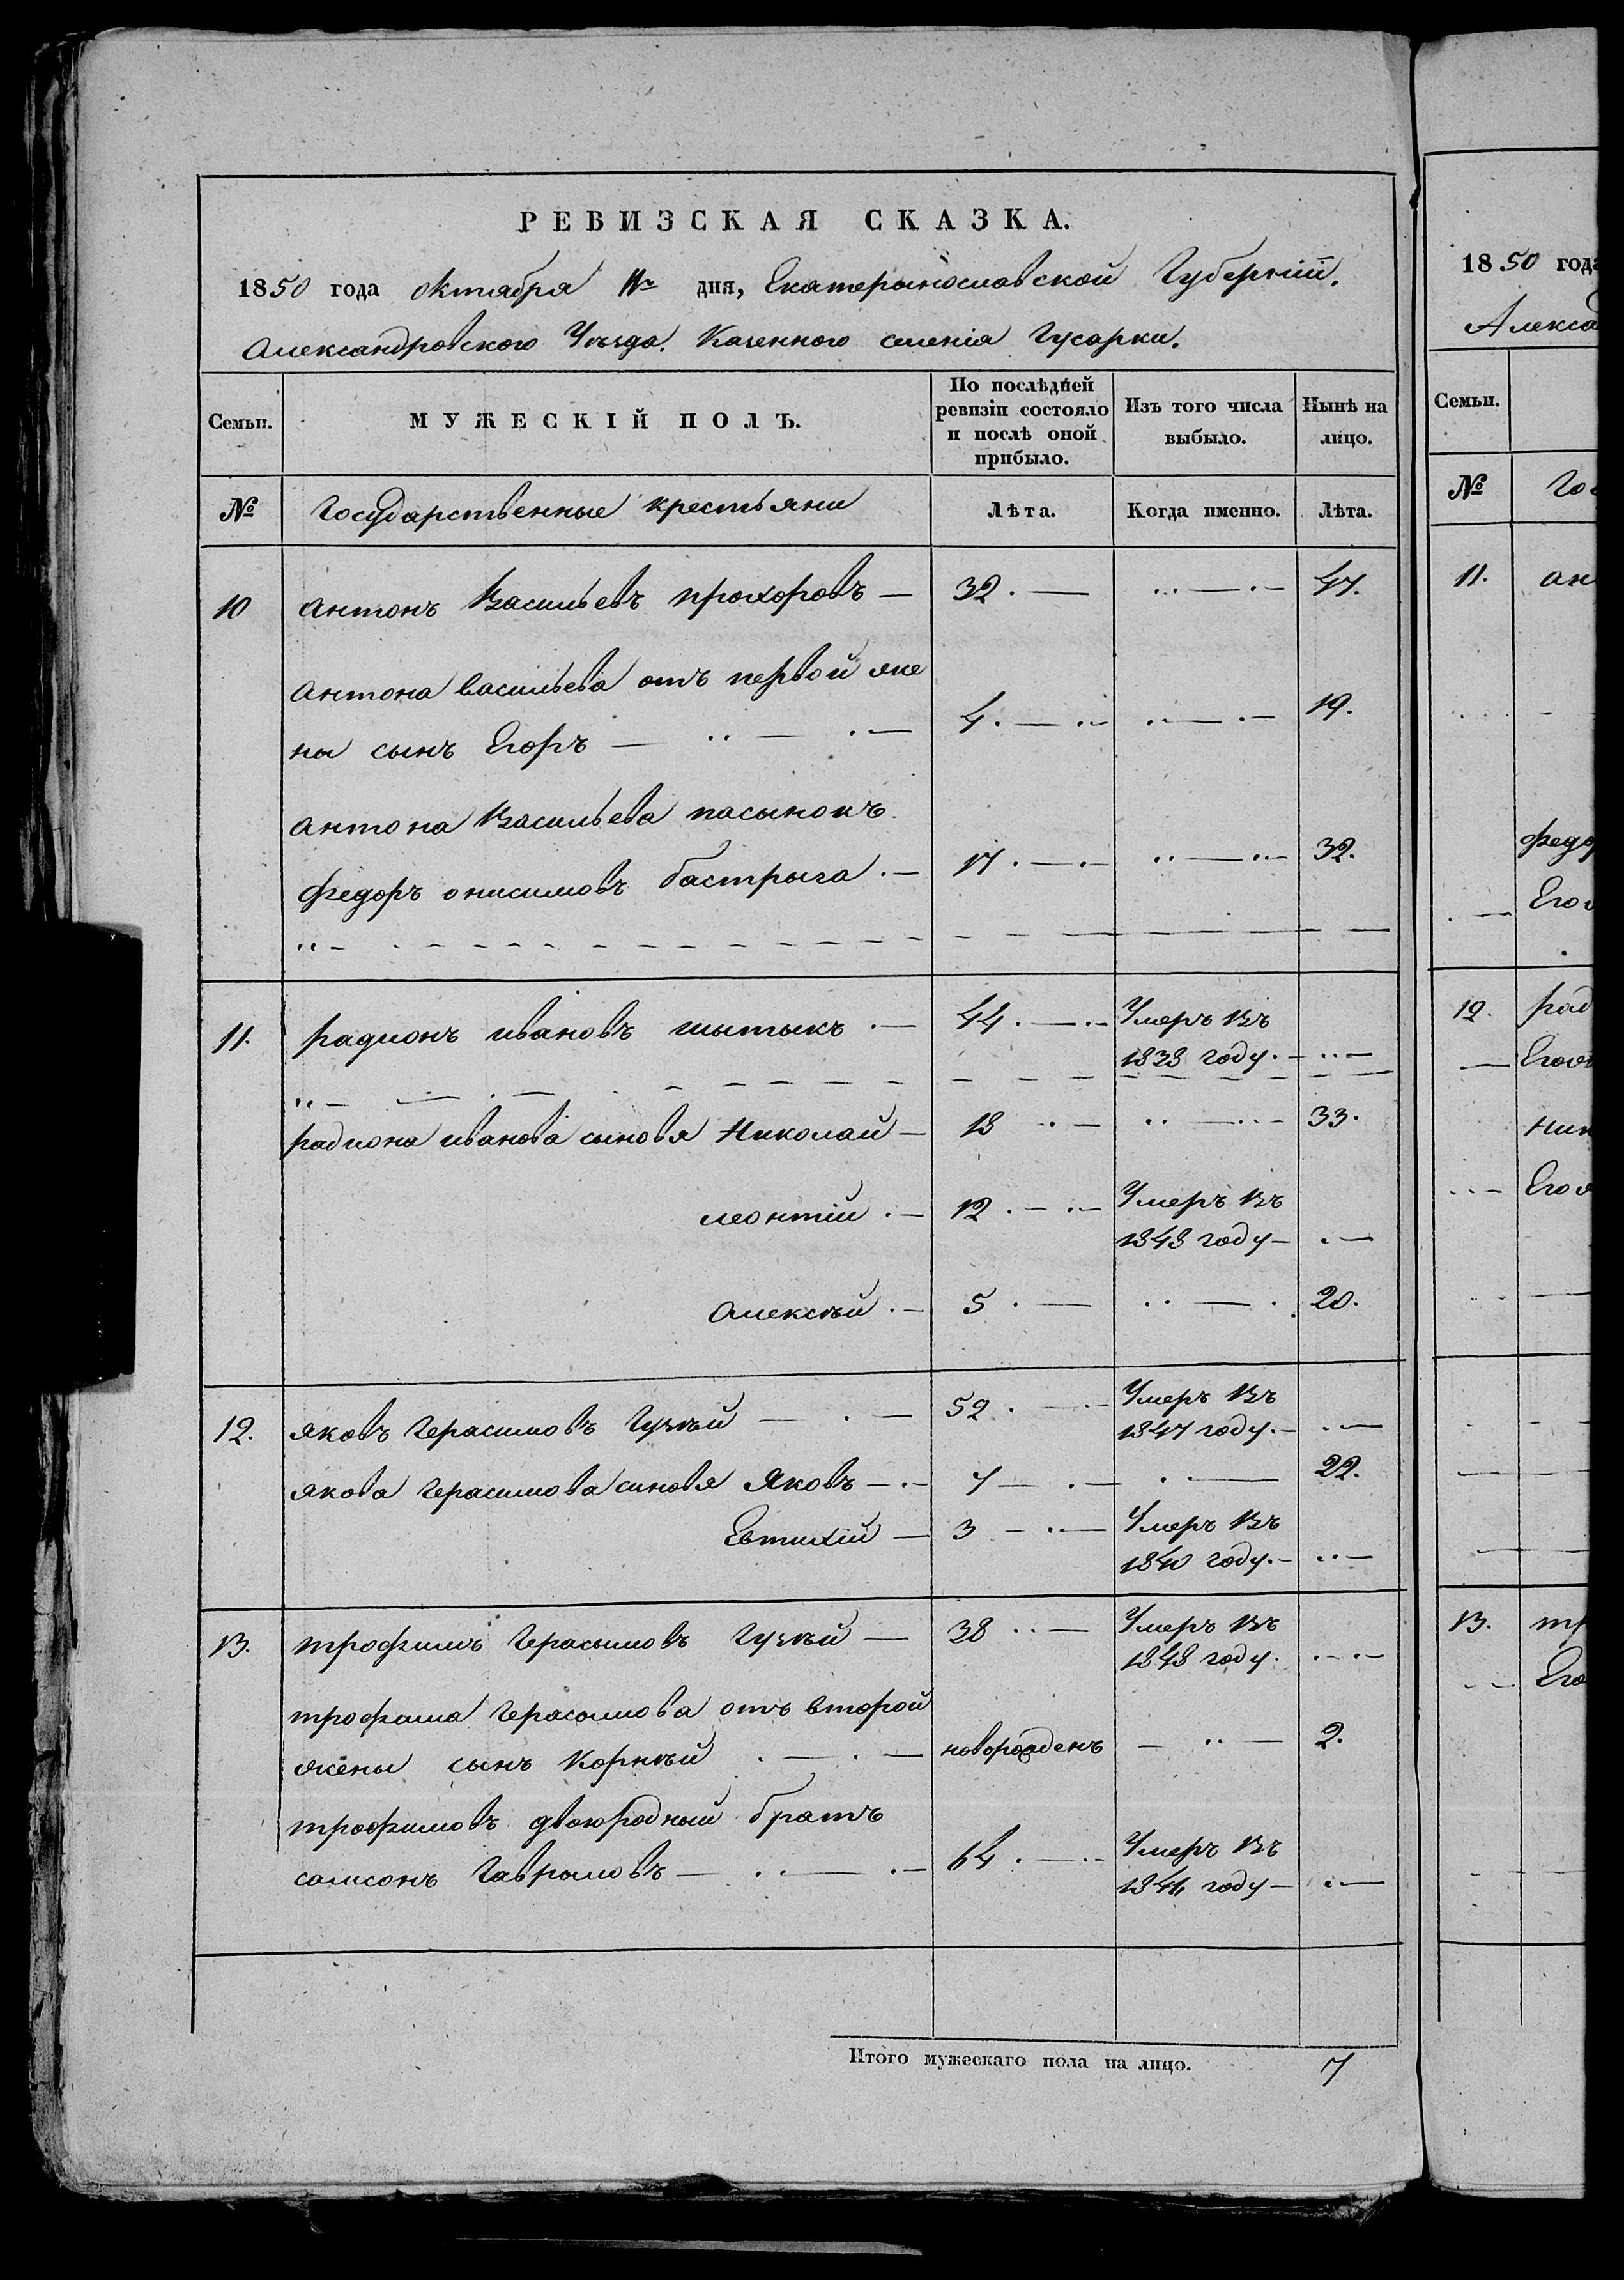 РЕВИЗСКАЯ СКАЗКА.
1850 года октября 11го дня, Екатерынославской Губерніи,
Александровского Уѣзда. Казенного селенія Гусарки.
Семьи. МУЖЕСКІЙ ПОЛЪ. По послѣдней ревизіи состояло и послѣ оной прибыло. Изъ того числа выбыло. Нынѣ на лицо.
№ Государственные крестьяни Лѣта. Когда именно. Лѣта.
10 Антонъ Васильевъ Прохоровъ — 32. — 47.
Антона Васильева отъ первой же
ны сынъ Егоръ — 4. — 19.
Антона Васильева пасынокъ
Федоръ Онисимовъ Бастрыга. — 17. — 32.
11. Радионъ Ивановъ Шытыкъ. — 44. — Умеръ въ
1838 году. —
Радиона Иванова сыновя Николай — 18 — 33.
Леонтій. — 12. — Умеръ въ
1848 году —
Алексѣй. — 5. — 20.
12. Яковъ Герасимовъ — 52. — Умеръ въ
1847 году. —
Якова Герасимова синовя Яковъ — 7 — 22.
Евтихій — 3 — Умеръ въ
1840 году. —
13. Трофимъ Герасымовъ — 38 — Умеръ въ
1848 году.
Трофима Герасымова отъ второй
жены сынъ Корнѣй — новорожденъ — 2.
Трофимовъ двоюродный братъ
Самсонъ Гаврыловъ — 64. — Умеръ въ
году —
Итого мужескаго пола на лицо. 7
1850 года
Алексад
Семьи.
№ Гос
11. Ан
Федо
Его
12. Рад
Его
Ник
Его
13. Тр
Его